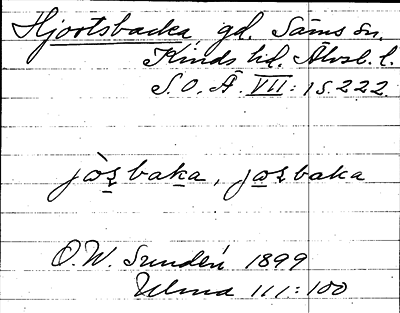 Hjortsbacka, gd. Säms sn.
Kinds hd. Älvsb. l.
S. O. Ä. VII: 1 S. 222
jòʂbaka, jaʂbaka
O. W. Sundén 1899
Ulma 111:100